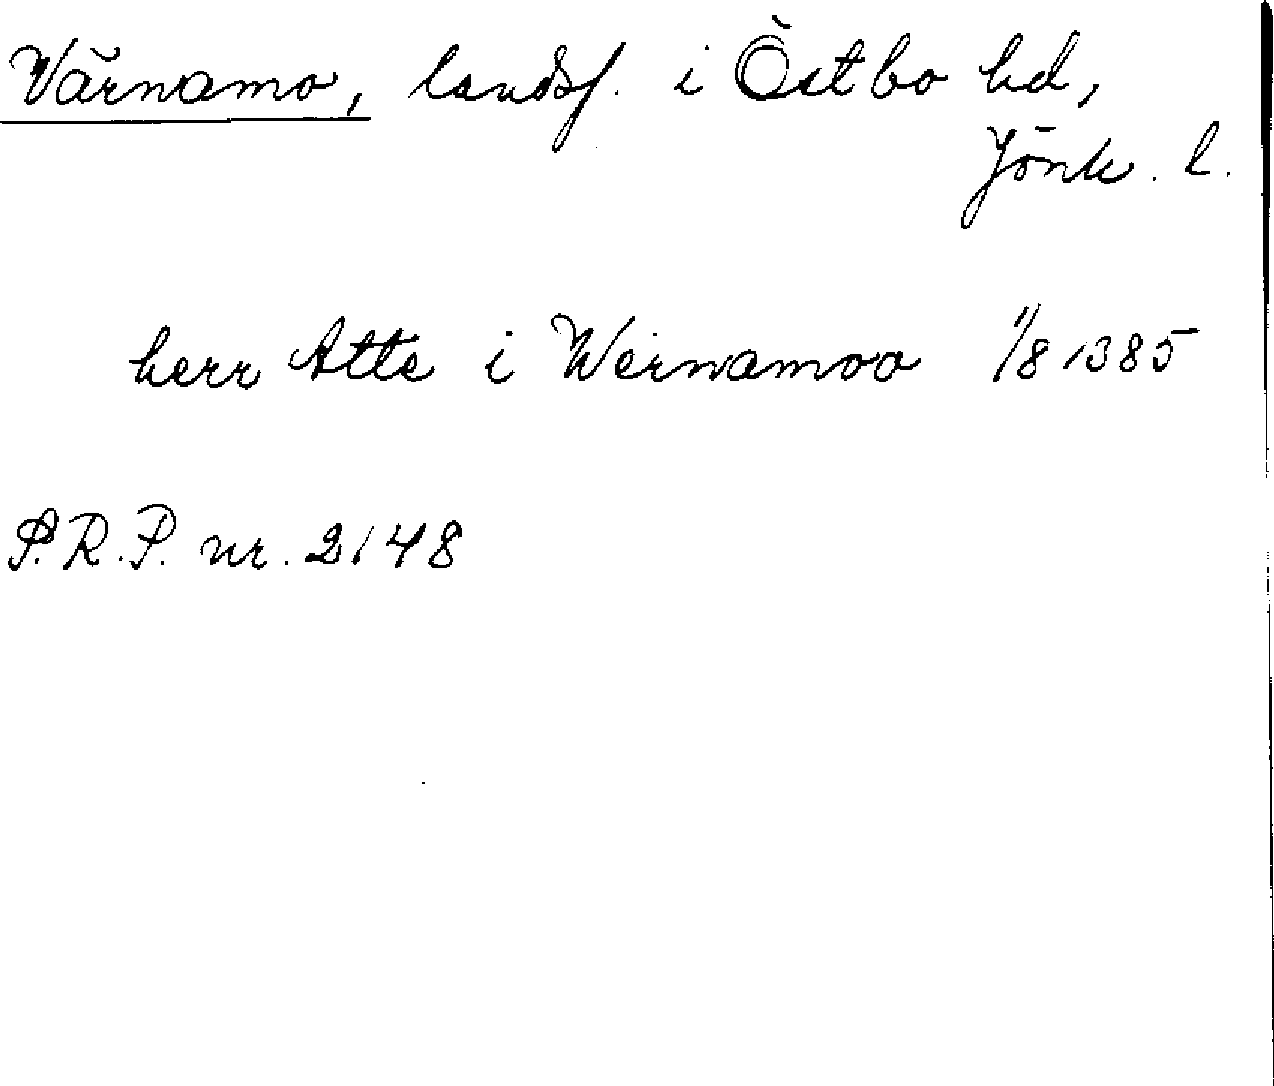 Värnamo, landsf. i Östbo hd,
Jönk. l.
herr Atte i Wernamoo 1/8 1385
S.R.P. nr. 2148